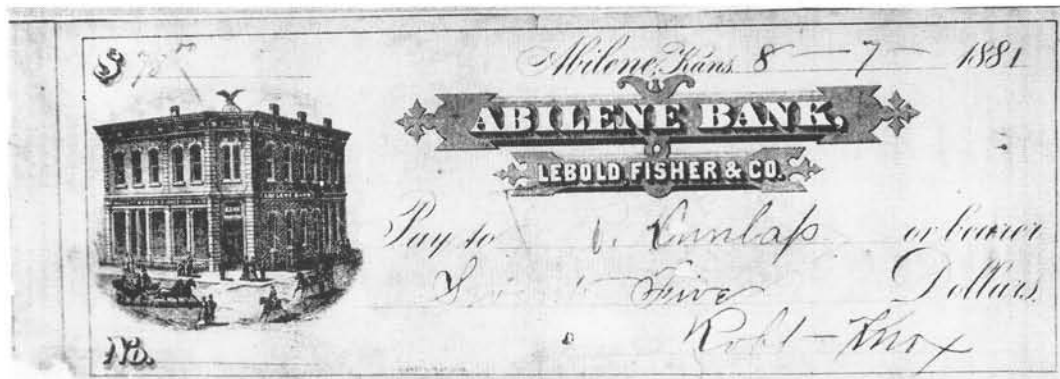 $ 75
Abilene, Kans. 8 — 7 — 1881
ABILENE BANK,
LEBOLD, FISHER & CO.
ABILENE BANK
Pay to Dunlap or bearer
Five Dollars
Robt - Knox
No.